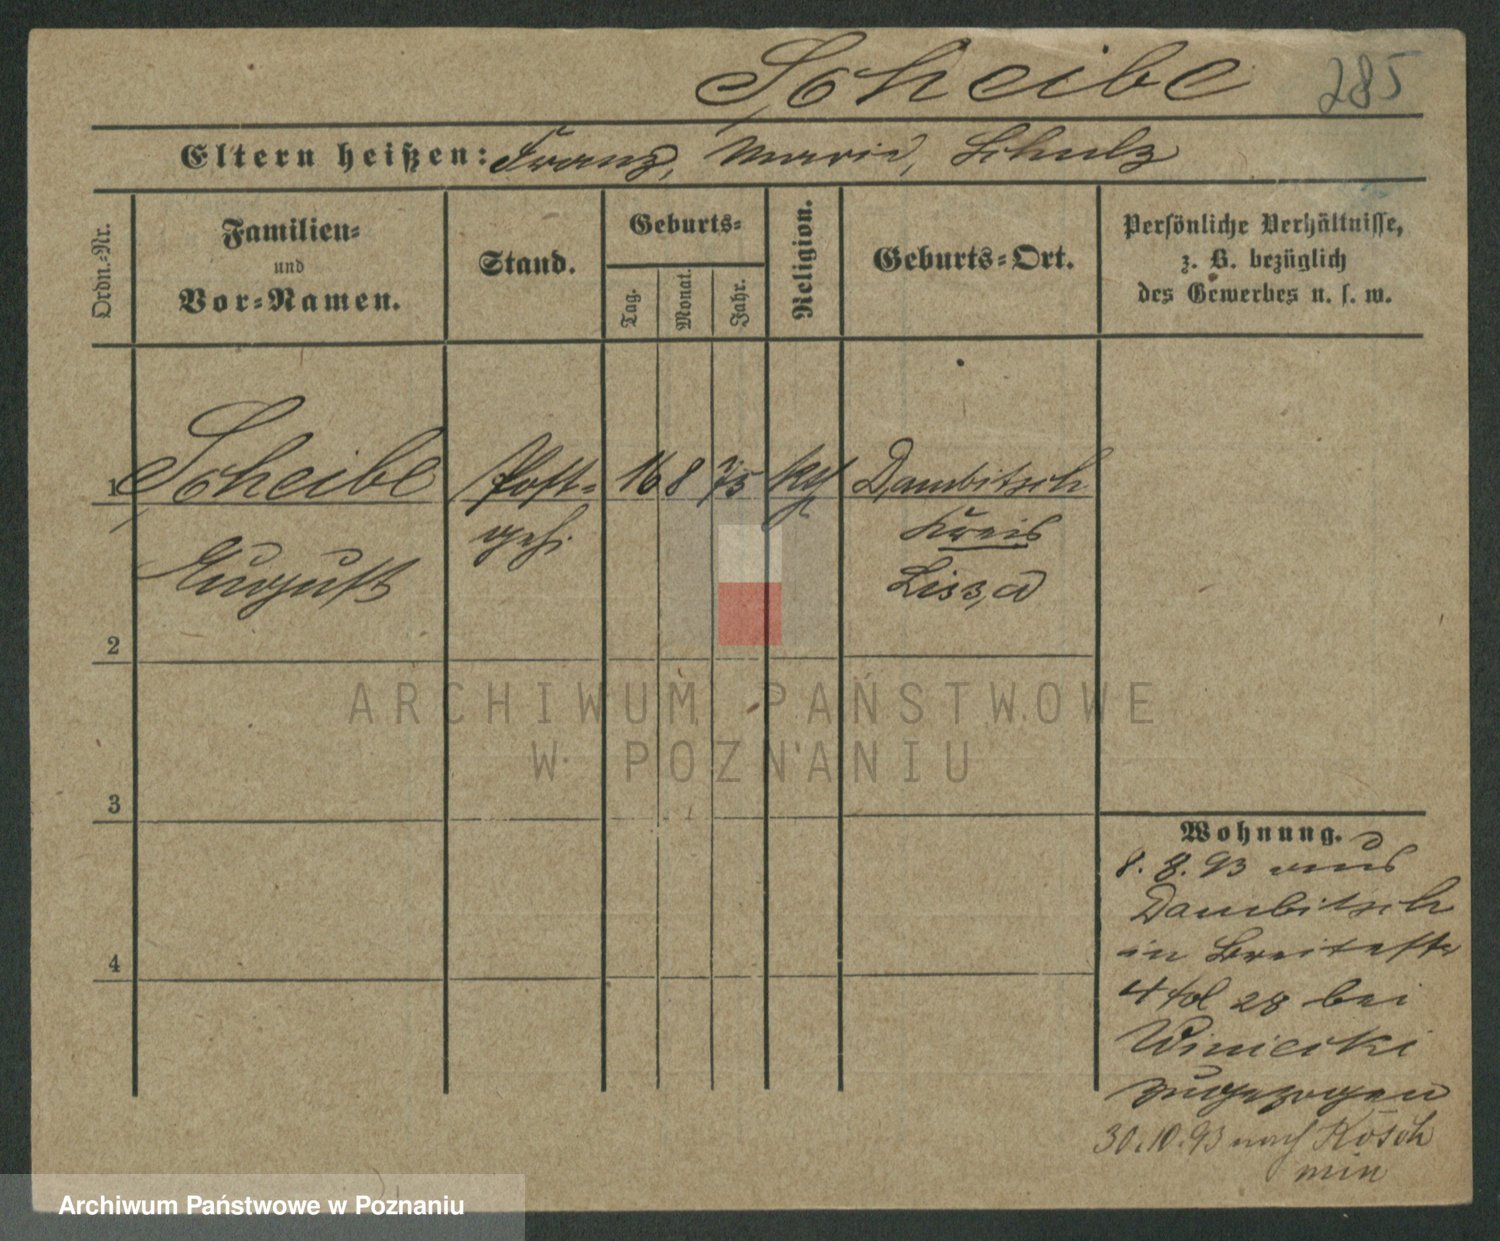 Scheibe 285
Eltern heißen: Franz, Marie, Schulz
Ordn.-Nr.
Familien-
und
Vor-Namen.
Stand.
Geburts-
Tag.
Monat.
Jahr.
Religion.
Geburts-Ort.
Persönliche Verhältnisse,
z. B. bezüglich
des Gewerbes u. s. w.
1 Scheibe Post- 16 8 75 kth Dambitsch
geh. Kreis
August Lissa
2
3
4
ARCHIWUM PAŃSTWOWE
W POZNANIU
Wohnung.
8. 8. 93 aus
Dambitsch
in Breitestr
28 bei
Winiecki
zugezogen
30.10.93 nach Kosch
min
Archiwum Państwowe w Poznaniu